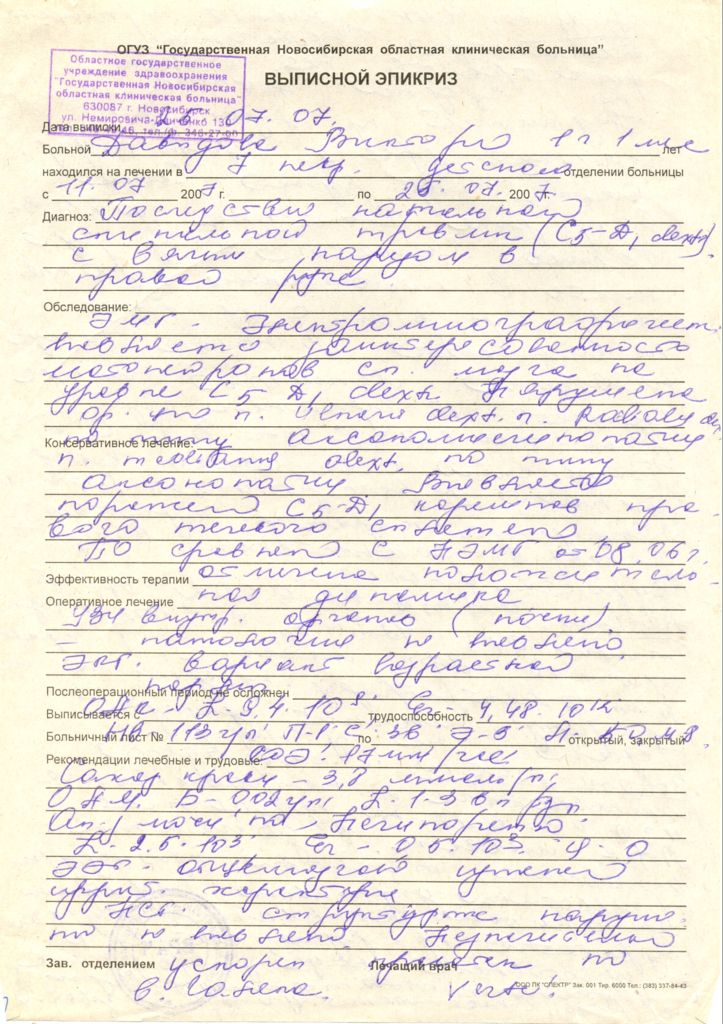 ОГУЗ "Государственная Новосибирская областная клиническая больница"
Областное государственное
учреждение здравоохранения
"Государственная Новосибирская
областная клиническая больница"
630087 г. Новосибирск
ул. Немировича-Данченко 130
ВЫПИСНОЙ ЭПИКРИЗ
Дата выписки 07. 07.
Больной Давыдова Виктори 1 г 1 мес лет
находился на лечении в 7 детском отделении больницы
с 11.07 2007 г. по 07. 2007.
Диагноз: Последствия натальной
спинальной травмы (C5-D1 dext)
с вялым парезом в
правой руке.
Обследование:
ЭМГ - Электромиографически
выявлено заинтересованность
мотонейронов сп. мозга на
уровне C5 D1 dext. Нарушена
п. Ulnaris dext. п. Radialis
Консервативное лечение: по типу аксономиелинопатии
п. medianus dext. по типу
аксонопатии Выявлено
поражение C5-D1 корешков пра-
вого плечевого сплетения
По сравнен с ЭМГ от 08.06 г.
Эффективность терапии отмечена положитель-
Оперативное лечение ная динамика
УЗИ внутр. органов (почки)
- патологии не выявлено
ЭКГ. вариант возрастной
нормы
Послеоперационный период не осложнен
Выписывается с ОАК - L-9,4. 10⁹ Er- 4,48. 10¹² трудоспособность
Больничный лист № Нв 113 г/л П-1 С-36 Э-3 по открытый, закрытый
Рекомендации лечебные и трудовые: СОЭ-17 мм/час
Сахар крови - 3,8 ммоль/л;
ОАМ. Б-002 г/л L-1-3 в п/зр
Ан. мочи по Нечипоренко
L-2.5.10³ Er-0.5.10³ Ц-0
ЭЭГ-
характера
НСГ структурных наруше-
ний не выявлено. Незначительно
Зав. отделением ускорен Лечащий врач по
в. Галена. Verte!
ООО ПК "СПЕКТР" Зак. 001 Тир. 6000 Тел.: (383) 337-84-43